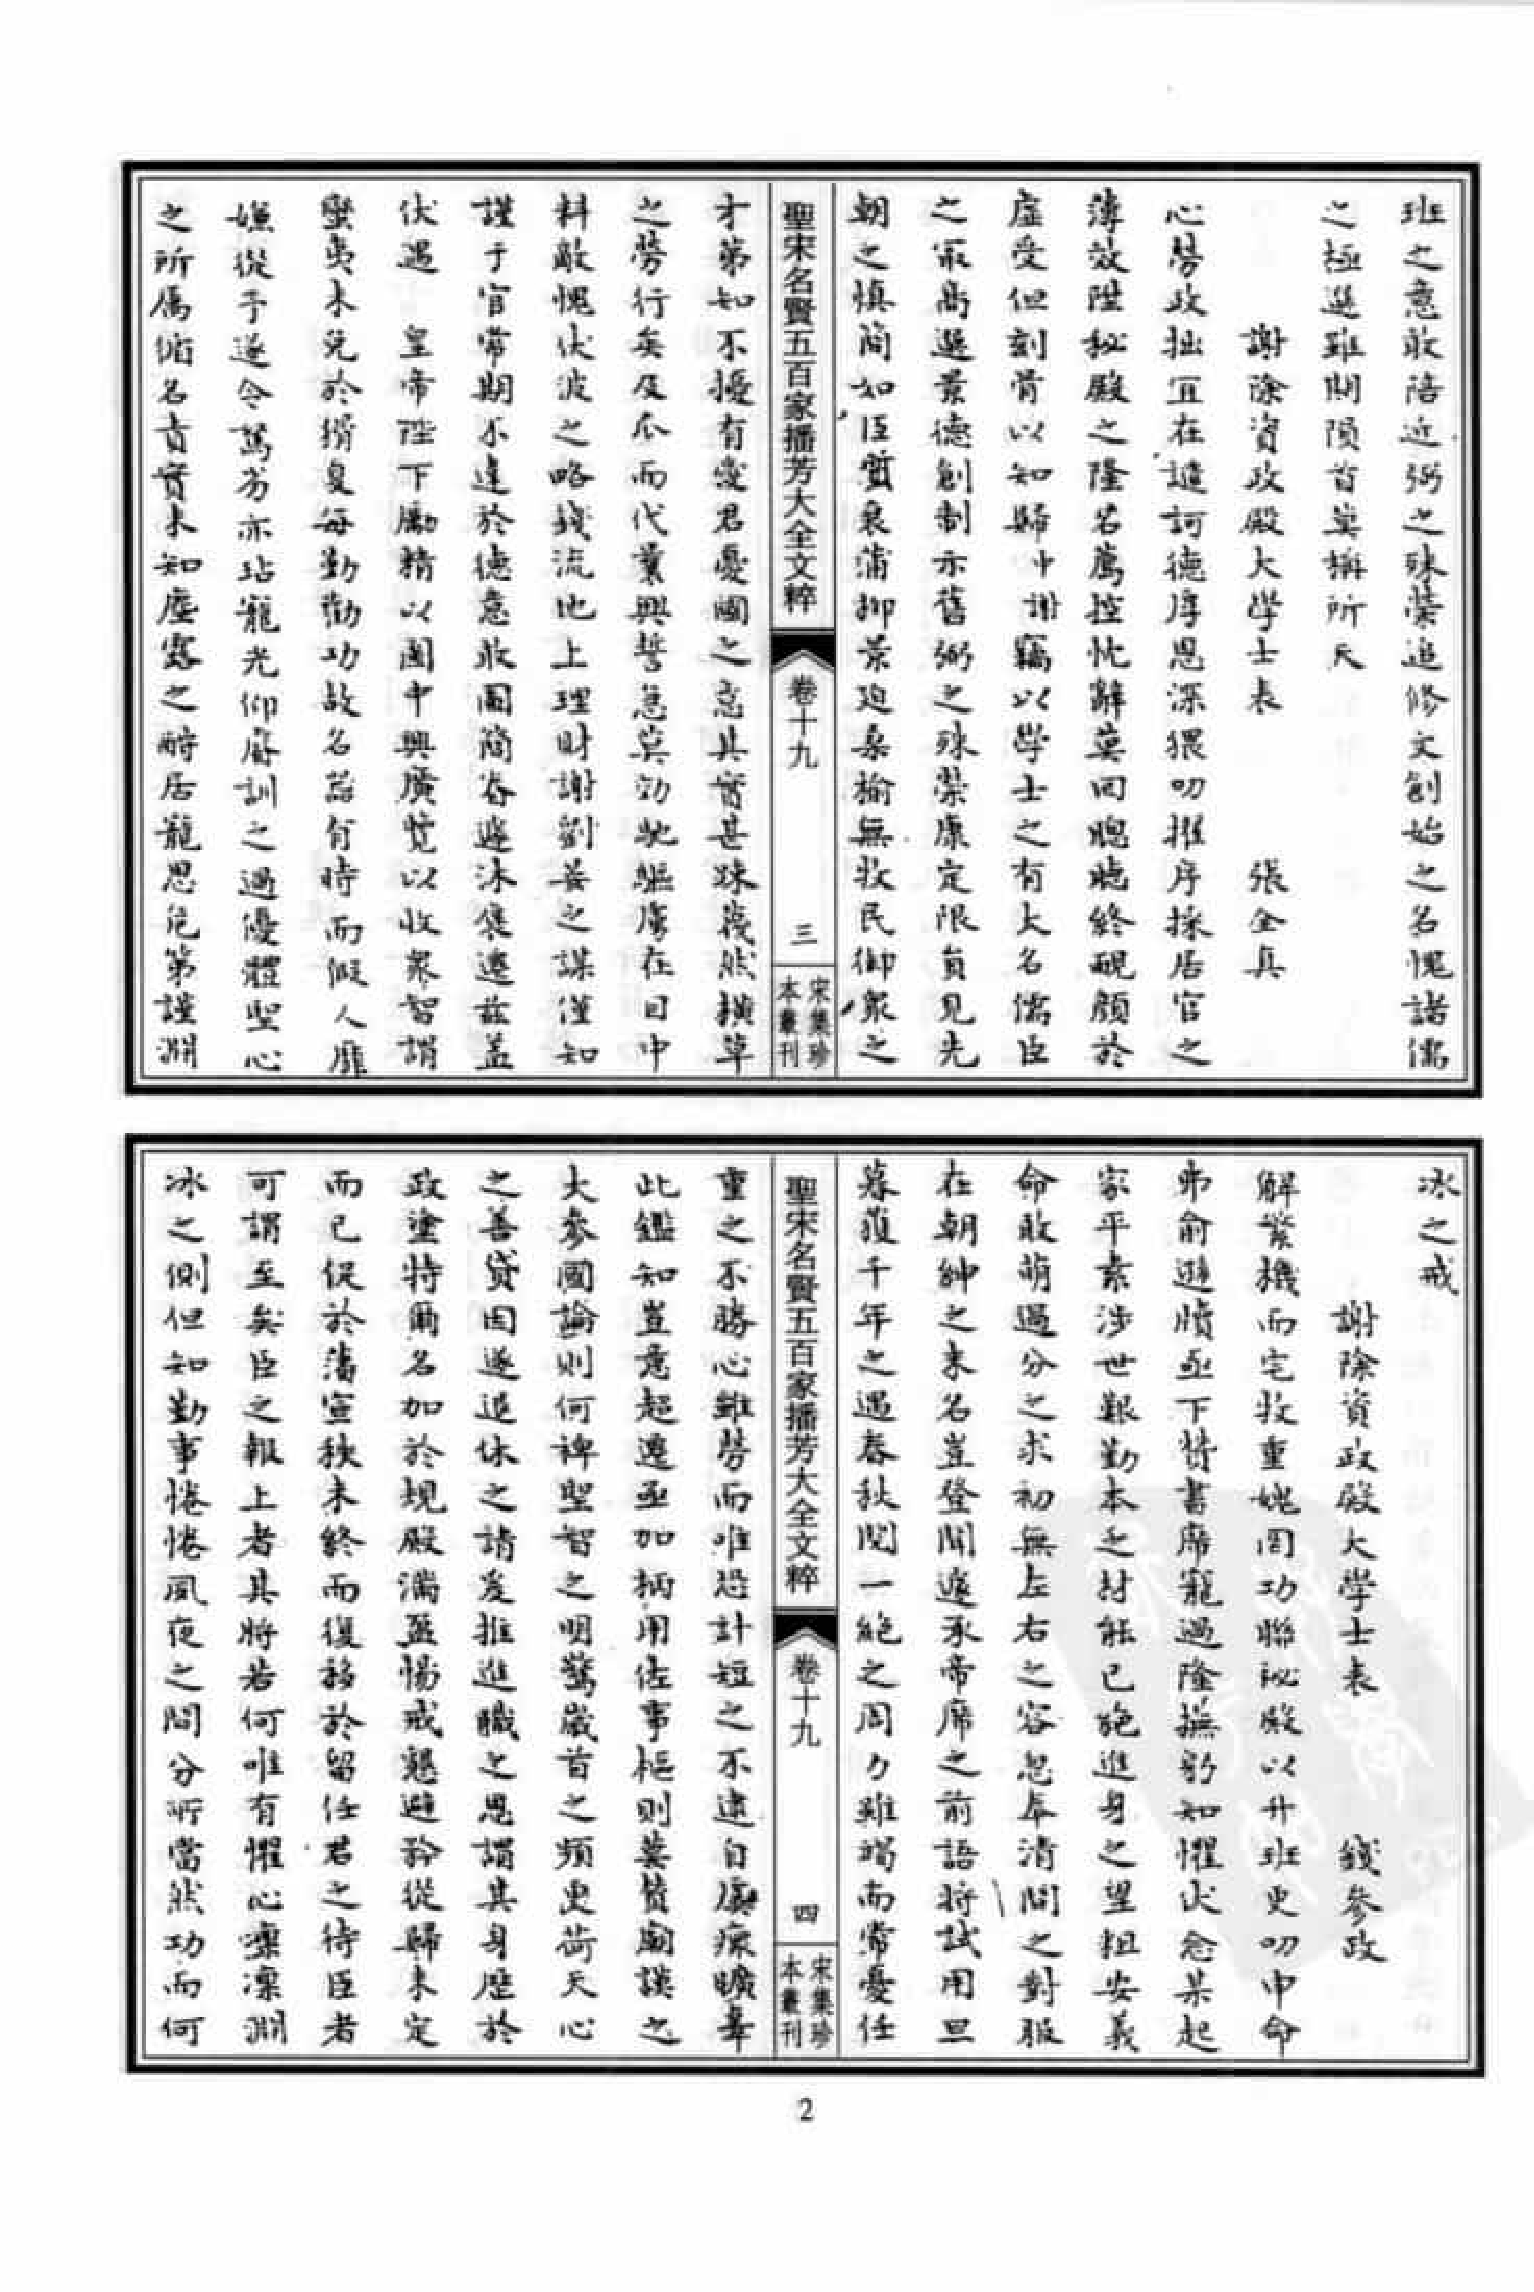 班之意敢陪近弼之殊榮追修文創始之名愧諸儒
之極選雖剛隕首莫稱所天
謝除資政殿大學士表 張全真
心勞政拙宜在譴訶德厚恩深猥叨推序揆居官之
薄效陞秘殿之隆名薦控忱辭莫回聰聽終靦顏於
虛受但刻骨以知歸中謝竊以學士之有大名儒臣
之最高選景德創制示舊弼之殊榮康定限員見先
朝之慎簡如臣質衰蒲柳景迫桑榆無牧民御衆之
聖宋名賢五百家播芳大全文粹
卷十九
三
宋集珍本叢刊
才第知不擾有愛君憂國之意其實甚踈蔑然横草
之勞行矣及瓜而代藁興誓急莫効馳驅虜在目中
料敵愧伏波之略錢流地上理財謝劉晏之謀僅知
謹于官常期不違於德意敢圖簡眷遽沐褒遷茲盖
伏遇 皇帝陛下勵精以圖中興廣覽以收衆智謂
蠻夷未兌於猾夏每勤勸功故名器有時而假人靡
嫌從予遂令駑劣亦玷寵光仰膺訓之過優體聖心
之所屬循名責實未知塵露之酧居寵思危第謹淵
冰之戒
謝除資政殿大學士表 錢參政
解繁機而宅牧重媿罔功聯祕殿以升班更叨申命
弗俞遜牘亟下貲書席寵過隆撫躬知懼伏念某起
家平素涉世艱勤本乏材能已絶進身之望粗安義
命敢萌過分之求初無左右之容忽奉清問之對服
在朝紳之末名豈登聞遽承帝席之前語將試用旦
暮獲千年之遇春秋閱一絶之周力雖竭而常憂任
聖宋名賢五百家播芳大全文粹
卷十九
四
宋集珍本叢刊
重之不勝心雖勞而唯恐計短之不逮自虞瘝曠辜
此鑑知豈意超遷亟加柄用佐事樞則蔑贊廟謨之
大參國論則何裨聖智之明驚歲首之頻更荷天心
之善貸因遂退休之請爰推進職之恩謂其身歷於
政塗特爾名加於規殿滿盈惕戒懇避矜從歸未定
而已促於藩宣秩未終而復移於留任君之待臣者
可謂至矣臣之報上者其將若何唯有懼心凛凛淵
冰之側但知勤事惓惓夙夜之間分所當然功而何
2